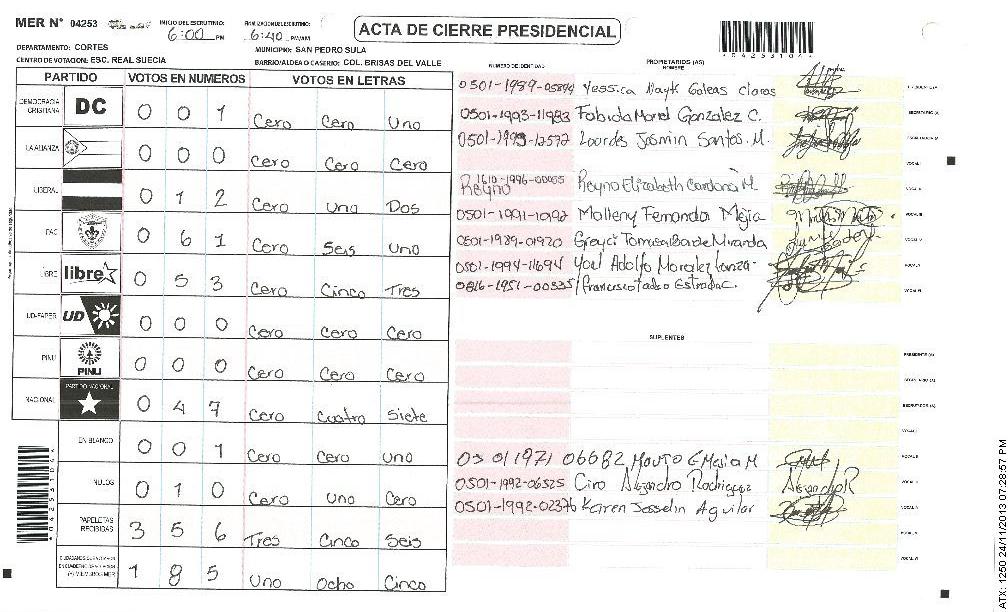 MER N° 04253
INICIO DEL ESCRUTINIO: 6:00 PM
FINALIZACION DEL ESCRUTINIO: 6:40 PM/AM
ACTA DE CIERRE PRESIDENCIAL
DEPARTAMENTO: CORTES
MUNICIPIO: SAN PEDRO SULA
CENTRO DE VOTACION: ESC. REAL SUECIA
BARRIO/ALDEA O CASERIO: COL. BRISAS DEL VALLE
PARTIDO VOTOS EN NUMEROS VOTOS EN LETRAS
DEMOCRACIA CRISTIANA DC 0 0 1 Cero Cero Uno
LA ALIANZA 0 0 0 Cero Cero Cero
LIBERAL 0 1 2 Cero Uno Dos
PAC 0 6 1 Cero Seis Uno
LIBRE libre 0 5 3 Cero Cinco Tres
UD-FAPER UD 0 0 0 Cero Cero Cero
PINU PINU 0 0 0 Cero Cero Cero
NACIONAL PARTIDO NACIONAL 0 4 7 Cero Cuatro Siete
EN BLANCO 0 0 1 Cero Cero Uno
NULOS 0 1 0 Cero Uno Cero
PAPELETAS RECIBIDAS 3 5 6 Tres Cinco Seis
1 8 5 Uno Ocho Cinco
NUMERO DE IDENTIDAD PROPIETARIOS (AS) NOMBRE
0501-1989-05894 Yessica Mayk Galeas Claros
0501-1993-11983 Fabiola Marel Gonzalez C.
0501-1993-12572 Lourdes Jasmin Santos. M.
1610-1996-00055 Reyno Reyno Elizabeth Cardona M
0501-1991-10992 Molleny Fernanda Mejia
0501-1989-01920 Greyci Tomasa de Miranda
0501-1994-11694 Yoel Adolfo Moralez
0816-1951-00335 Francisco Tadeo Estrada C.
SUPLENTES
0501 1971 06682 G Mejia M
0501-1992-06525 Ciro Alejandro Rodriguez Alejandro R
0501-1992-02376 Karen Josselin Aguilar
*04253104*
ATX: 1250 24/11/2013 07:28:57 PM